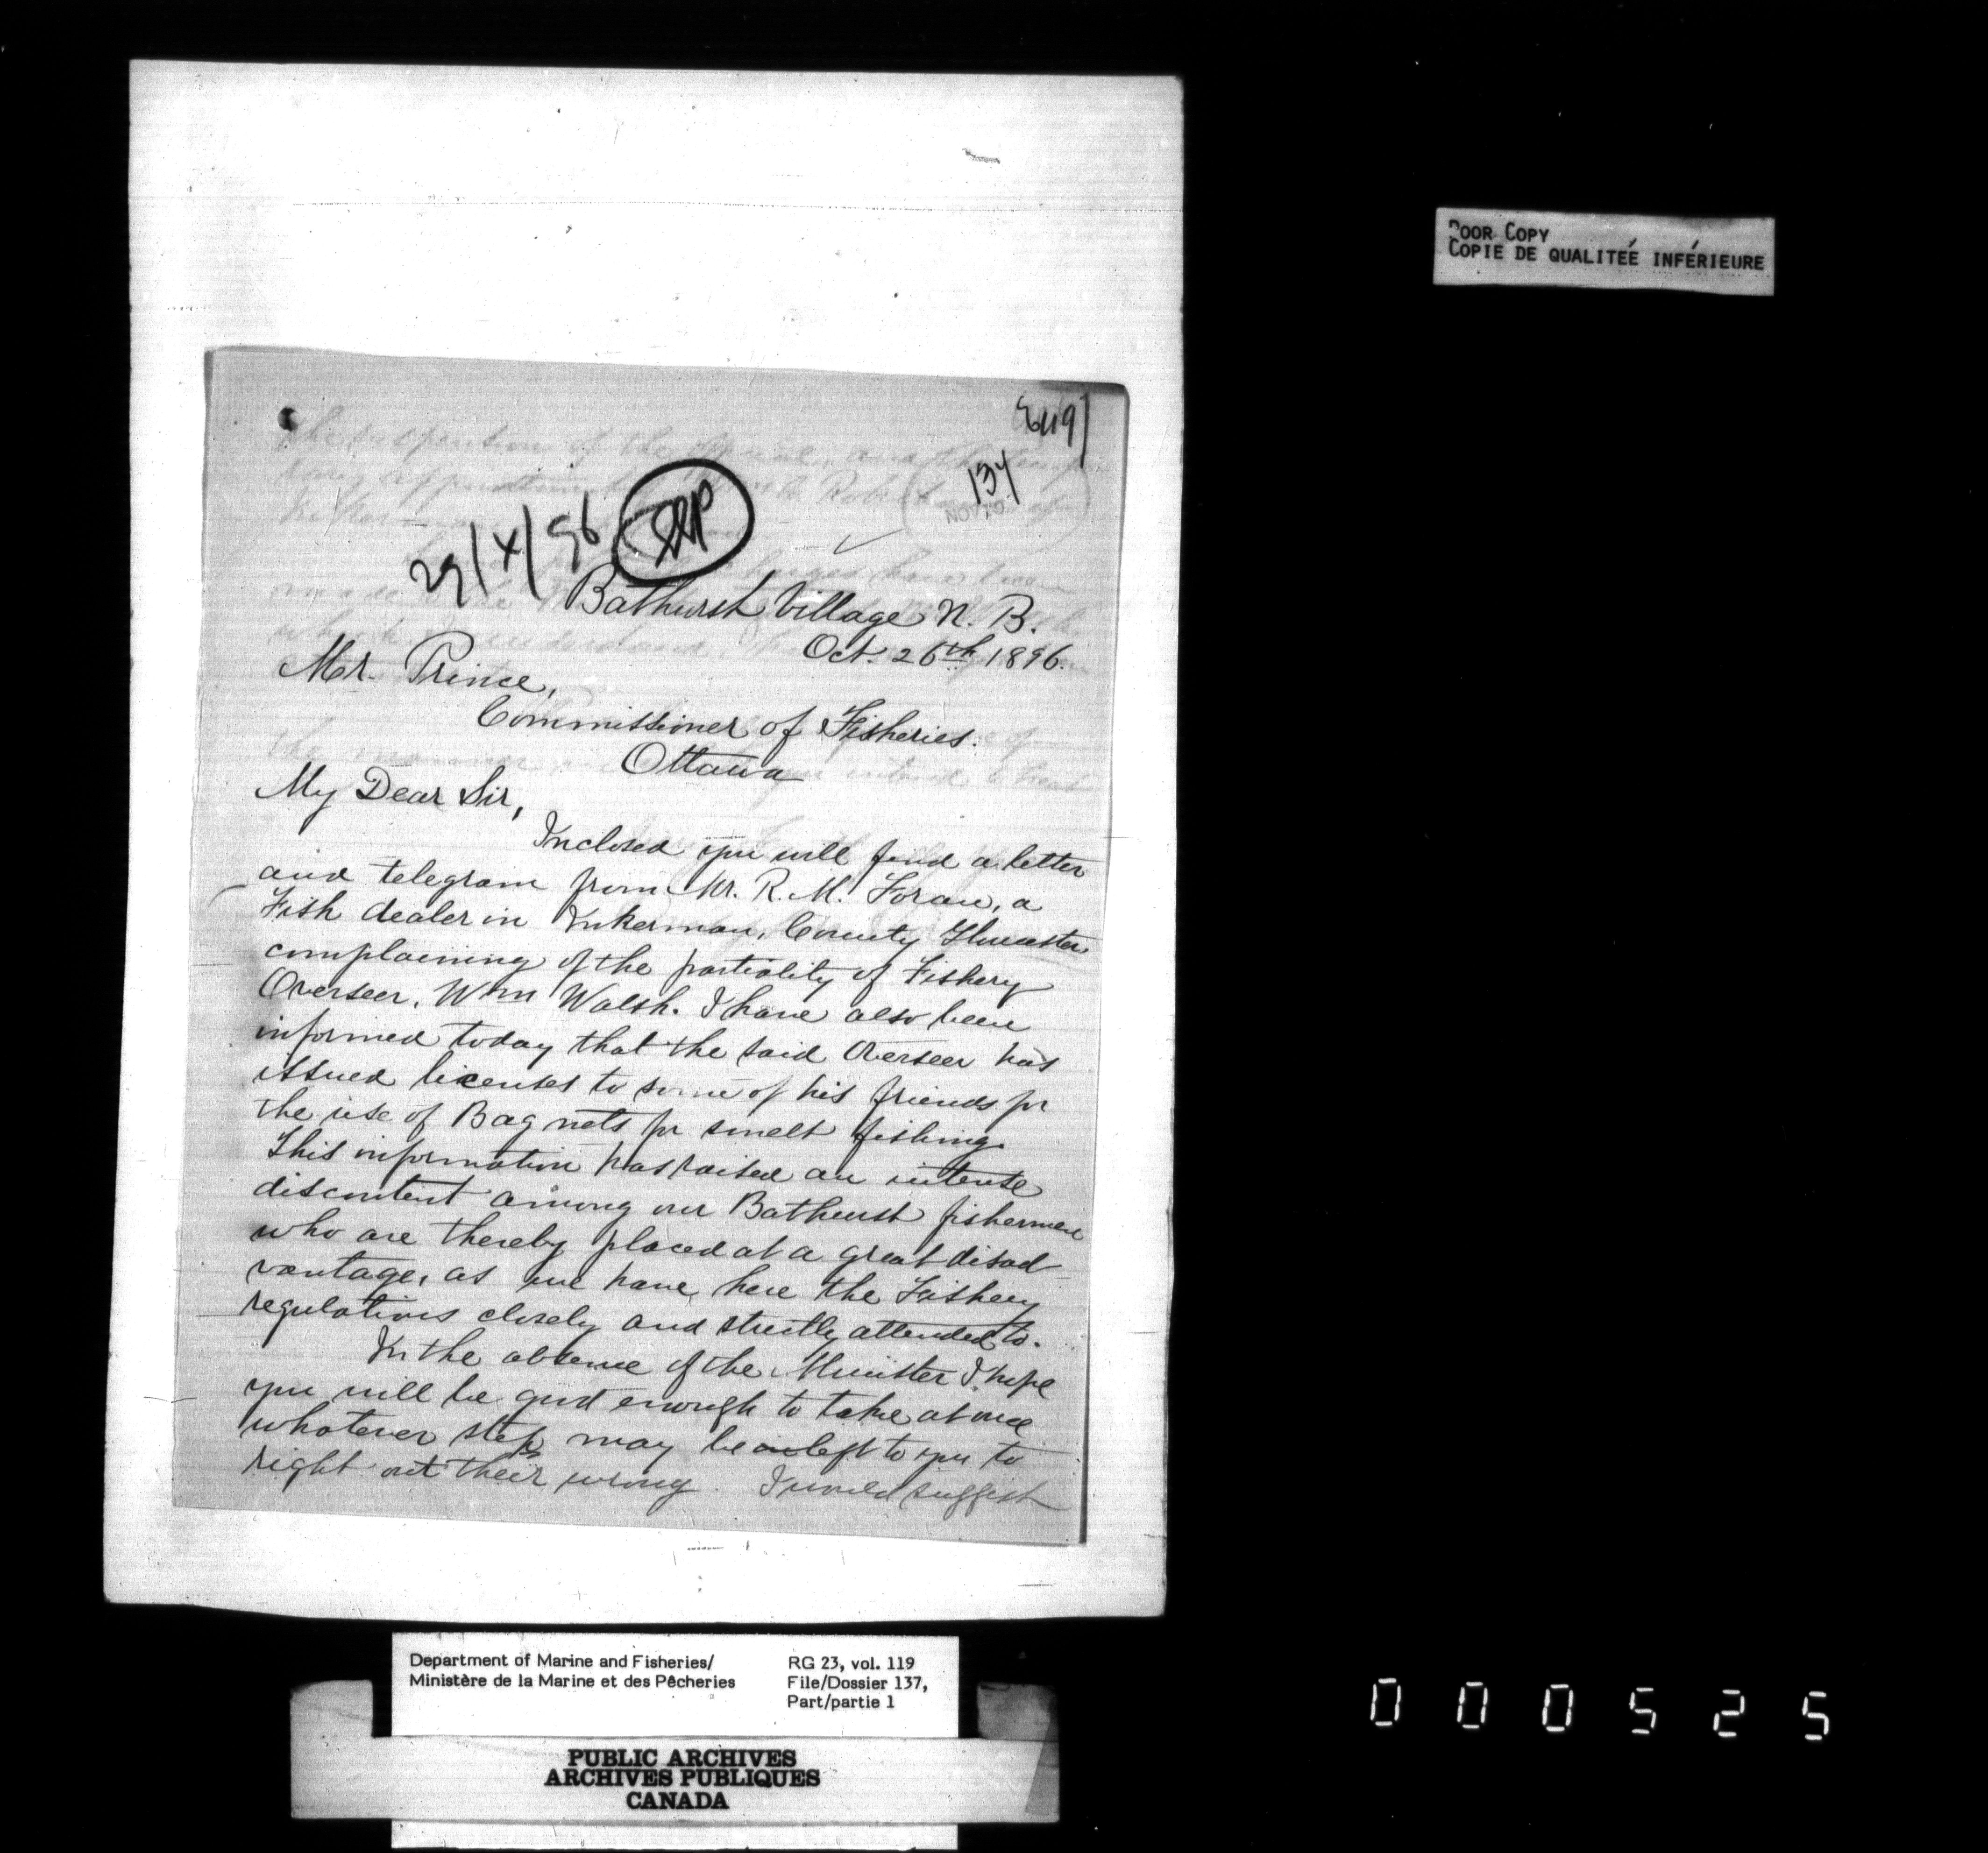 POOR COPY
COPIE DE QUALITEÉ INFÉRIEURE
137
29/X/96
Bathurst Village N. B.
Oct. 26th 1896.
Mr. Prince,
Commissioner of Fisheries.
Ottawa
My Dear Sir,
Inclosed you will find a letter
and telegram from Mr. R. M. Foran, a
Fish dealer in Inkerman, County Gloucester
complaining of the partiality of Fishery
Overseer, Wm Walsh. I have also been
informed today that the said Overseer has
issued licenses to some of his friends for
the use of Bag nets for smelt fishing.
This information has raised an intense
discontent among our Bathurst fishermen
who are thereby placed at a great disad-
vantage, as we have here the Fishery
regulations closely and strictly attended to.
In the absence of the Minister I hope
you will be good enough to take at once
whatever steps may be left to you to
right out their wrong. I would suggest
Department of Marine and Fisheries/
Ministère de la Marine et des Pêcheries
RG 23, vol. 119
File/Dossier 137,
Part/partie 1
PUBLIC ARCHIVES
ARCHIVES PUBLIQUES
CANADA
000525